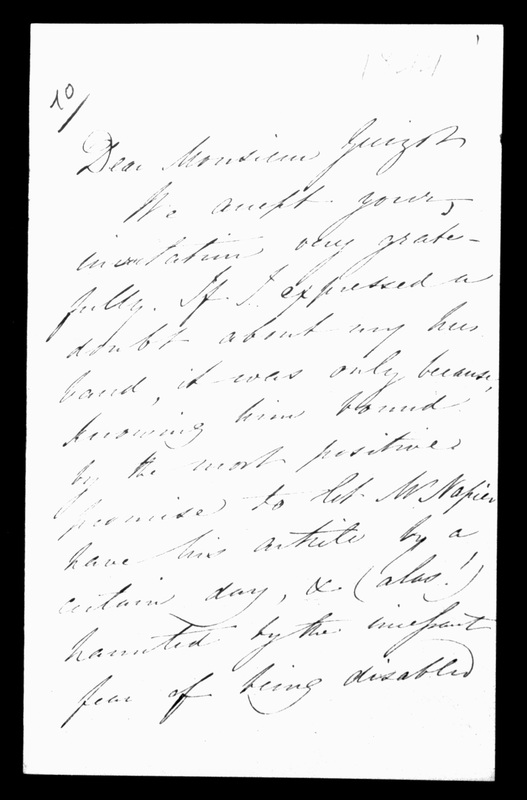 10/
Dear Monsieur Guizot
We accept your
invitation very grate-
fully. If I expressed a
doubt about my hus
band, it was only because,
knowing him bound
by the most positive
promise to let Mr Napier
have his article by a
certain day, & (alas!)
haunted by the incessant
fear of being disabled